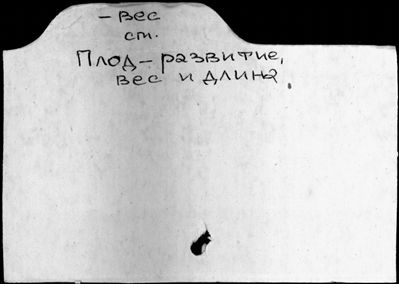 – вес
см.
Плод – развитие,
вес и длина.